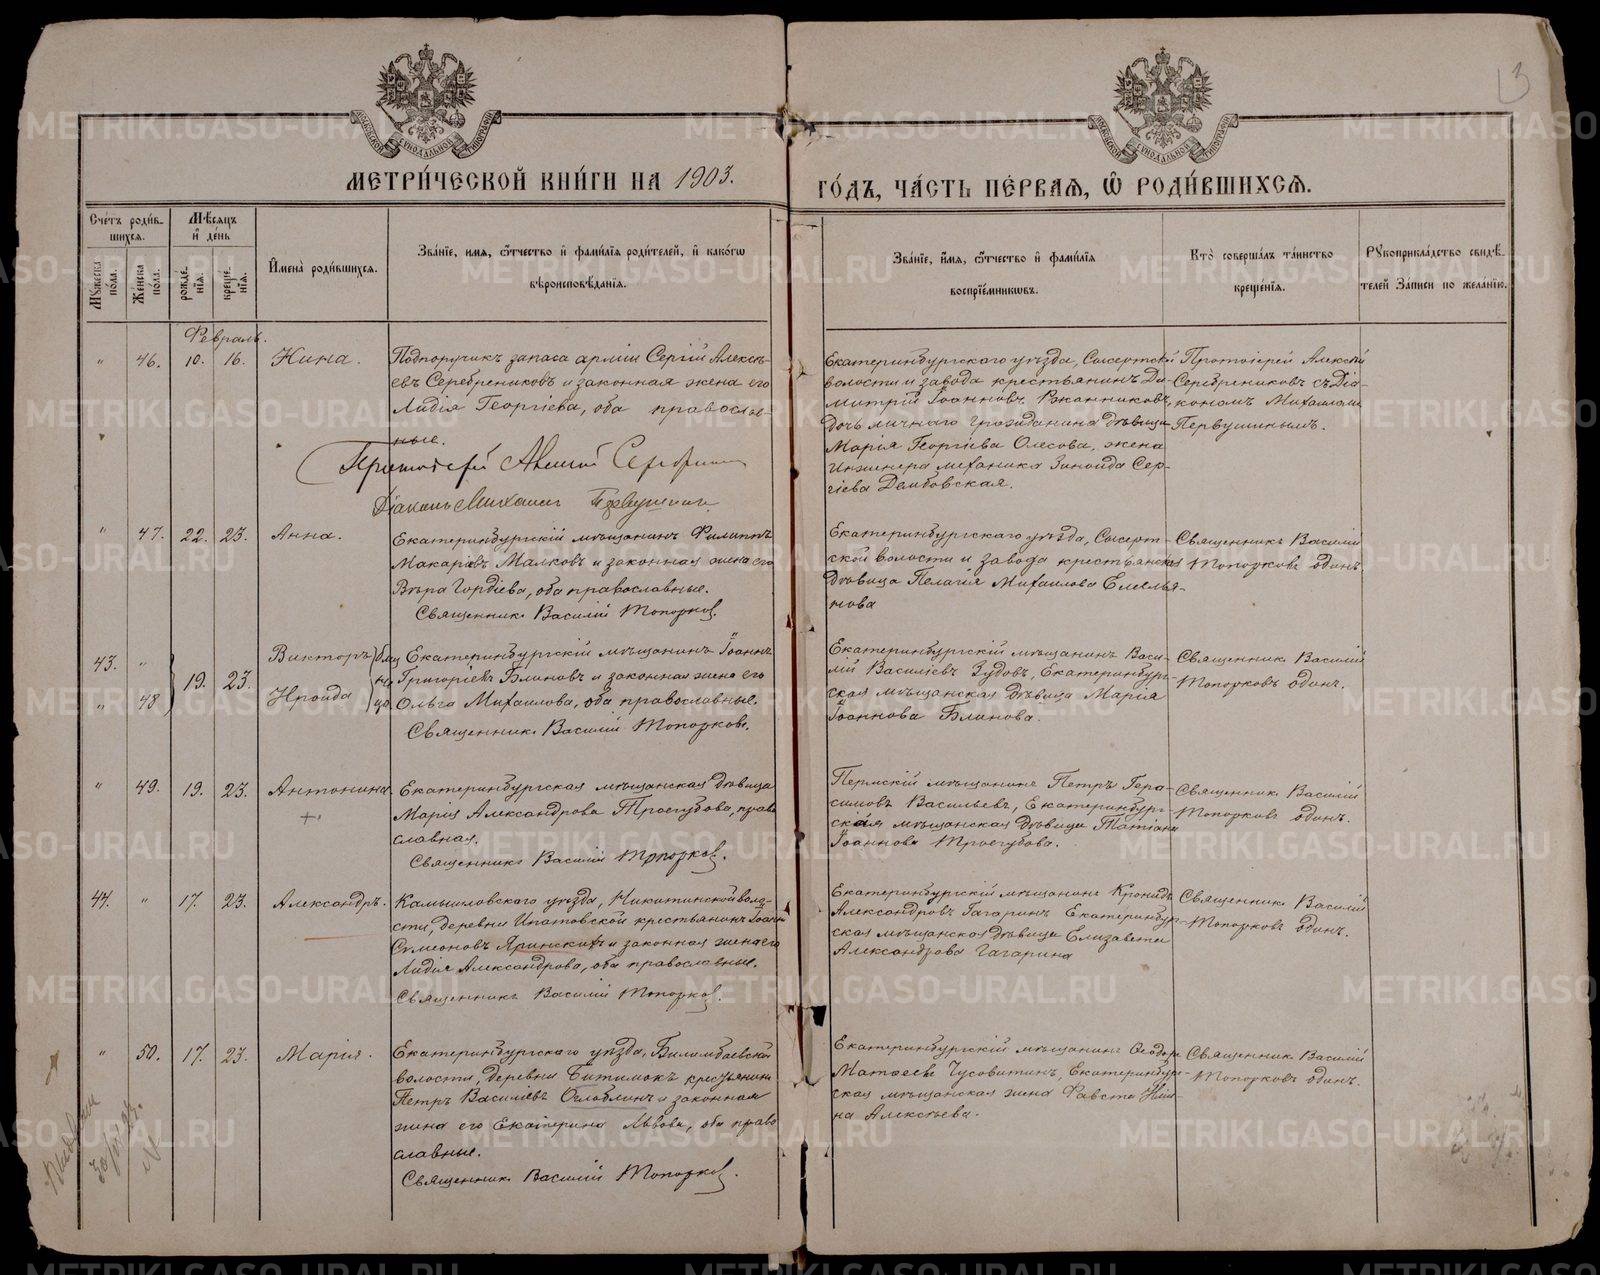 МЕТРИ́ЧЕСКОЙ КНИ́ГИ НА 1903.
ГО́ДЪ, ЧА́СТЬ ПЕ́РВАѦ, Ѡ РОДИ́ВШИХСѦ.
3
Сче́тъ роди́в-
шихсѧ.
Мѣсѧцъ
и де́нь
Мꙋжеска
по́ла.
Же́нска
по́ла.
рожде́-
нїѧ.
креще́-
нїѧ.
Имена̀ роди́вшихсѧ.
Зва́нїе, имѧ, ѻтчество и фами́лїѧ роди́телей, и како́гѡ
вѣроисповѣ́данїѧ.
Зва́нїе, имѧ, ѻтчество и фами́лїѧ
воспрїе́мникѡвъ.
Кто̀ соверша́лъ та́инство
креще́нїѧ.
Рꙋкоприкла́дство свидѣ́-
телей за́писи по жела́нїю.
Февраль.
" 46. 10. 16. Нина.
Подпоручикъ запаса арміи Сергій Алексѣ-
евъ Серебрениковъ и законная жена его
Лидія Георгіева, оба православ-
ные.
Протоіерей Алексій
Діаконъ Михаилъ Первушинъ
Екатеринбургскаго уѣзда, Сысертской
волости и завода крестьянинъ Ди-
митрій Іоанновъ
дочь личнаго гражданина дѣвица
Марія Георгіева Олесова, жена
инженера механика Зинаида Сер-
гіева Дембовская.
Протоіерей Алексій
Серебрениковъ съ діа-
кономъ Михаиломъ
Первушинымъ.
" 47. 22. 23. Анна.
Екатеринбургскій мѣщанинъ Филиппъ
Макаріевъ Малковъ и законная жена его
Вѣра Гордіева, оба православные.
Священникъ Василій Топорковъ.
Екатеринбургскаго уѣзда, Сысерт-
ской волости и завода крестьянская
дѣвица Пелагія Михаилова Емелья-
нова
Священникъ Василій
Топорковъ одинъ.
43. " 19. 23. Викторъ близ
" 48 Ираида не цо
Екатеринбургскій мѣщанинъ Іоаннъ
Григоріевъ Блиновъ и законная жена его
Ольга Михаилова, оба православные.
Священникъ Василій Топорковъ.
Екатеринбургскій мѣщанинъ Васи-
лій Василіевъ Зудовъ, Екатеринбург-
ская мѣщанская дѣвица Марія
Іоаннова Блинова.
Священникъ Василій
Топорковъ одинъ.
" 49. 19. 23. Антонина
Екатеринбургская мѣщанская дѣвица
Марія Александрова Трегубова, право
славная.
Священникъ Василій Топорковъ.
Пермскій мѣщанинъ Петръ Гера-
симовъ Васильевъ, Екатеринбург-
ская мѣщанская дѣвица Татіана
Іоаннова Трегубова.
Священникъ Василій
Топорковъ одинъ.
44. " 17. 23. Александръ.
Камышловскаго уѣзда, Никитинской воло-
сти, деревни Ипатовской крестьянинъ Іоаннъ
Сѵмеоновъ Яринскихъ и законная жена его
Лидія Александрова, оба православные.
Священникъ Василій Топорковъ.
Екатеринбургскій мѣщанинъ Кронидъ
Александровъ Гагаринъ Екатеринбур-
ская мѣщанская дѣвица Елизавета
Александрова Гагарина
Священникъ Василій
Топорковъ одинъ.
" 50. 17. 23. Марія.
Екатеринбургскаго уѣзда, Билимбаевской
волости, деревни Битимокъ крестьянинъ
Петръ Василіевъ Оглоблинъ и законная
жена его Екатерина Львова, оба право
славные.
Священникъ Василій Топорковъ.
Екатеринбургскій мѣщанинъ Ѳеодоръ
Матѳеевъ Чусовитинъ, Екатеринбург-
ская мѣщанская жена Фавста
на Алексѣева.
Священникъ Василій
Топорковъ одинъ.
METRIKI.GASO-URAL.RU